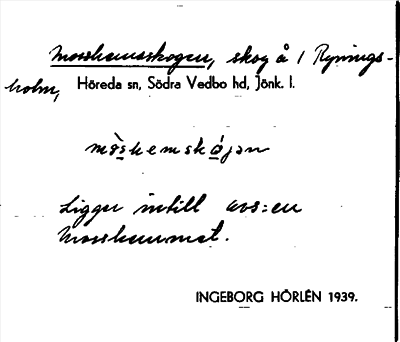 Mosshemsskogen, skog å 1 Rynings-
holm, Höreda sn, Södra Vedbo hd, Jönk. l.
mòshemskójan
Ligger intill avs:en
Mosshemmet.
INGEBORG HÖRLÉN 1939.